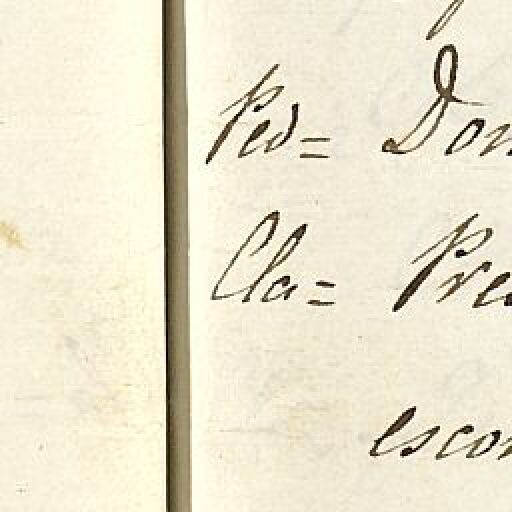 Ped= Don
Cla= Pre
escon